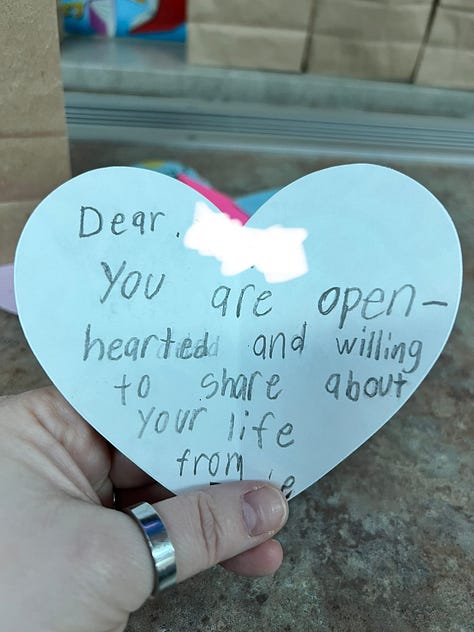 Dear.
You are open-
hearted and willing
to share about
your life
from